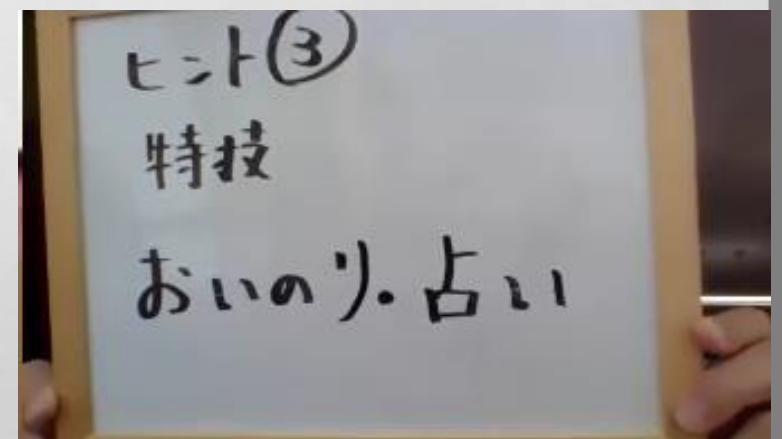 ヒント③
特技
おいのり・占い